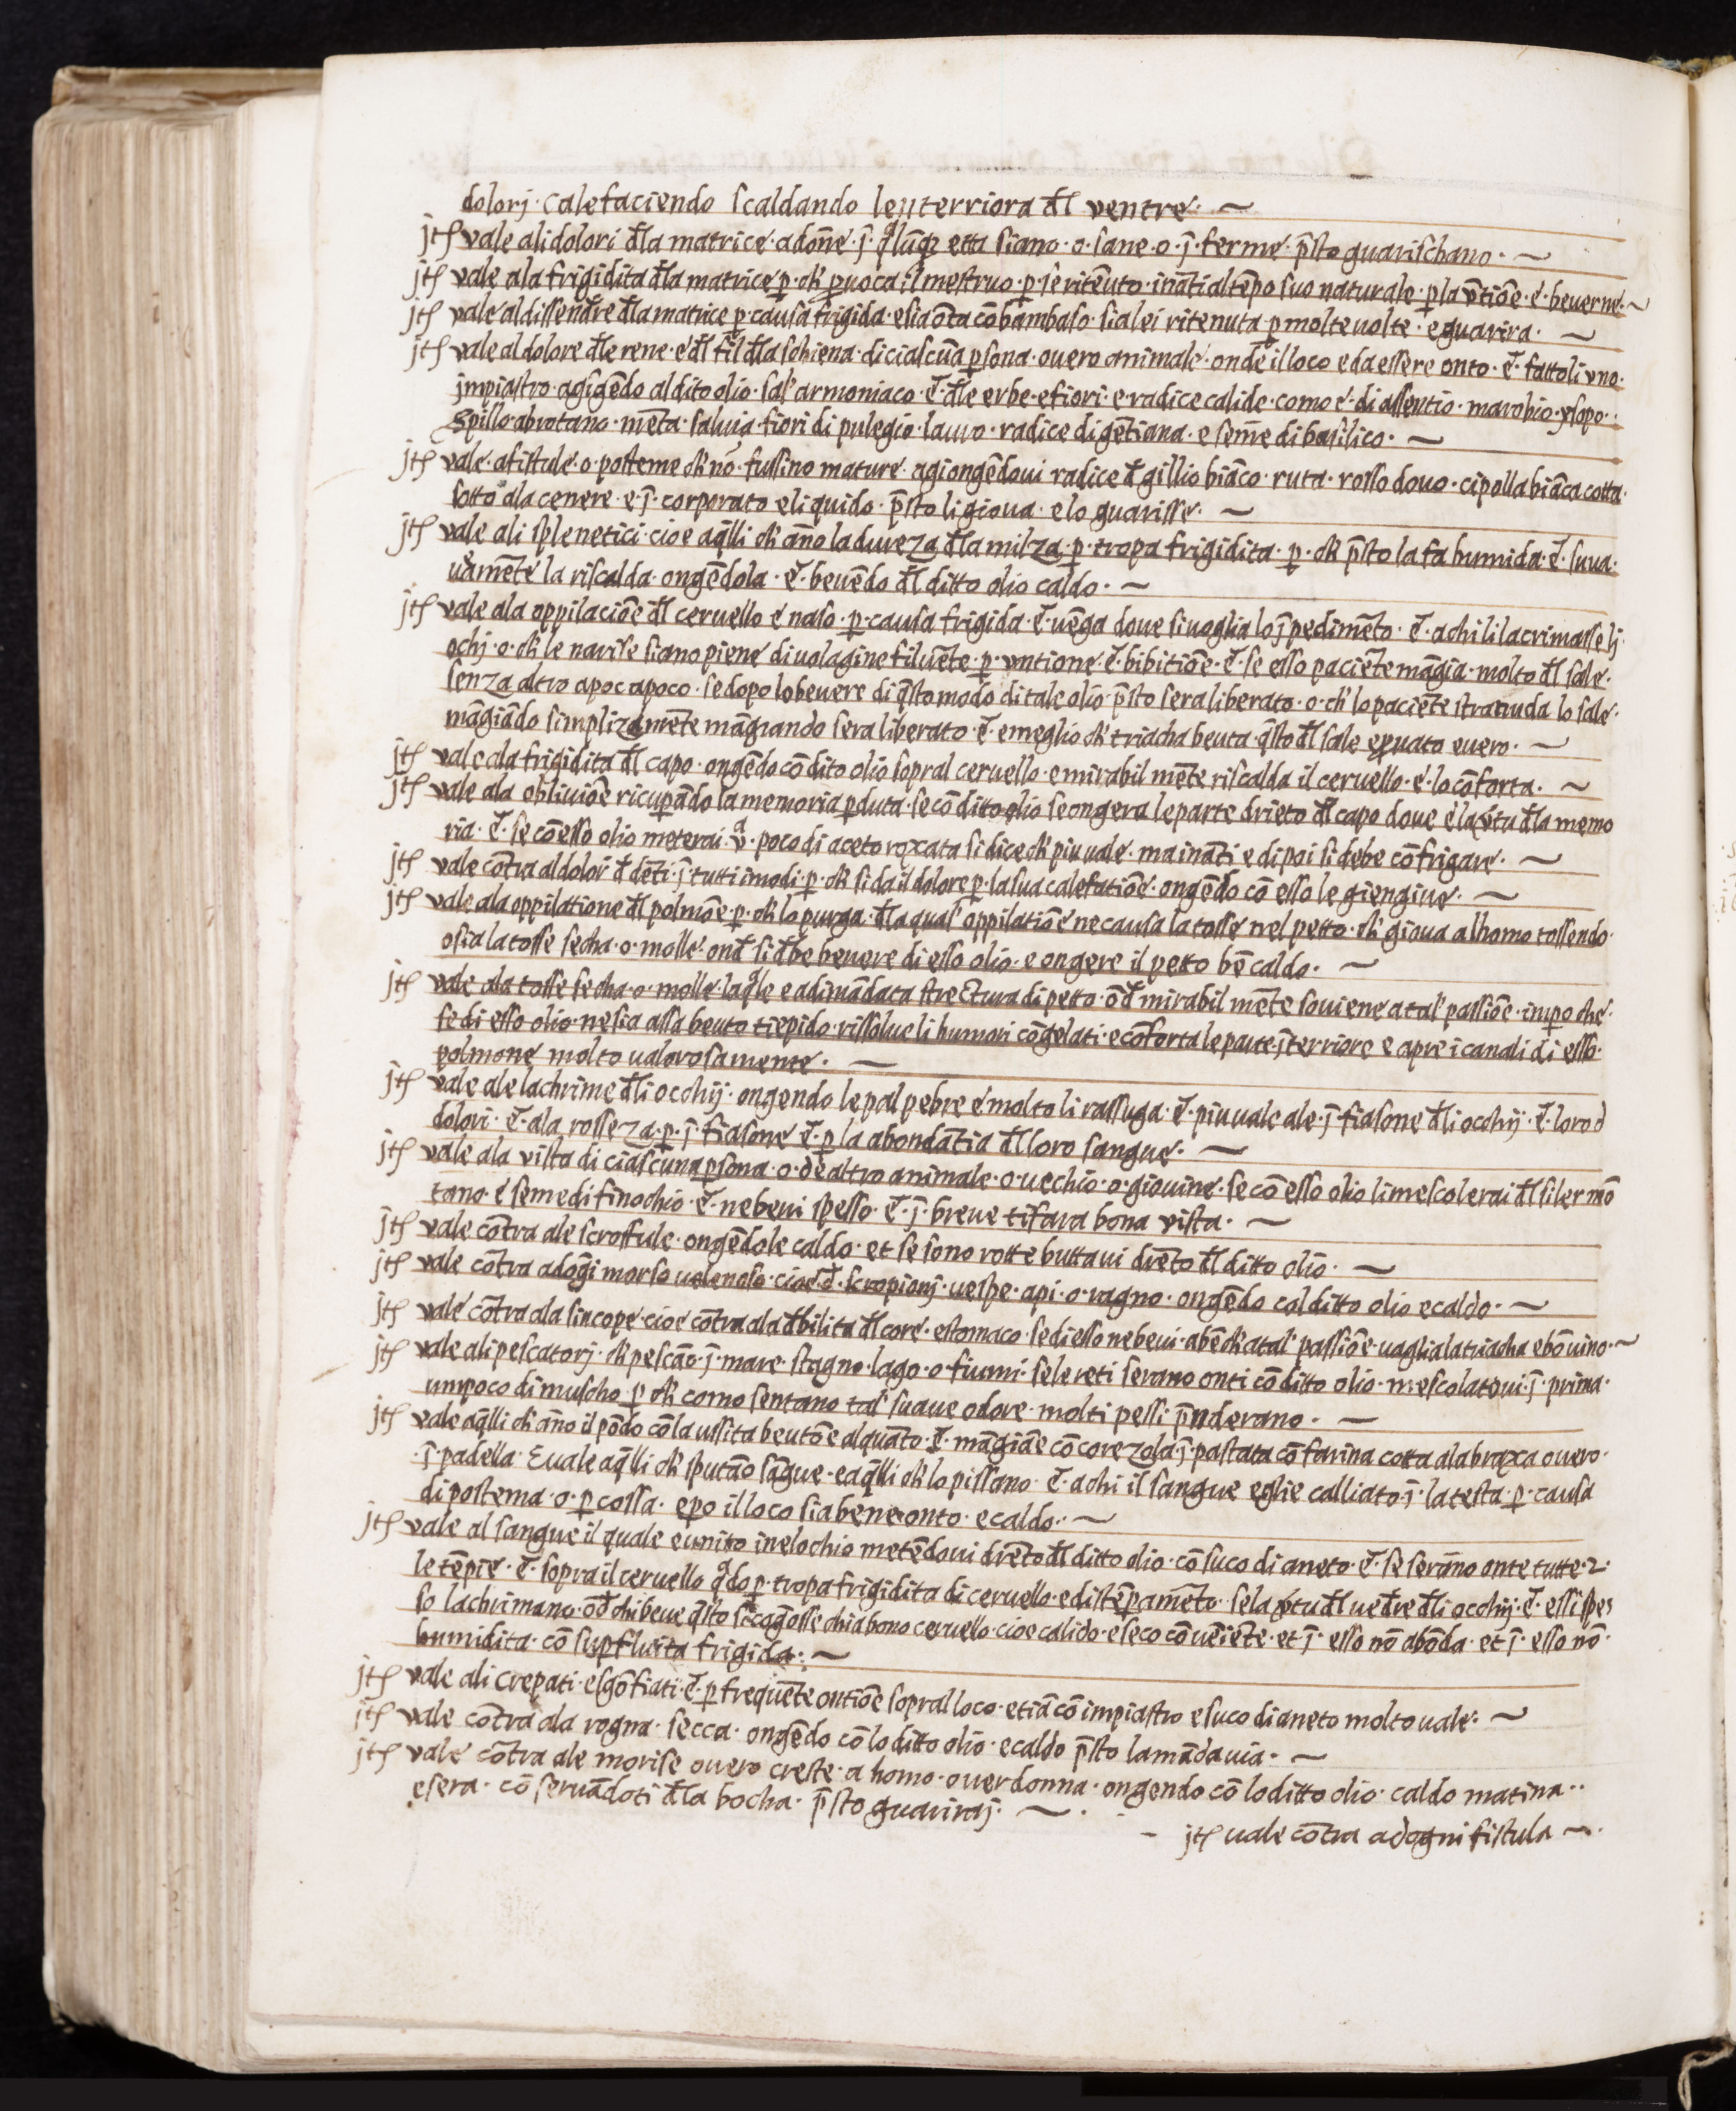 dolorj · calefaciendo scaldando le interriora đl ventre · ~
jtҽ vale ali dolori đla matrice · a doñe · ī · qlūqz etta siano · o · sane · o · ī · ferme · p̄sto guarischano · ~
jtҽ vale ala frigidita đla matrice p̱ · ch' p̱uoca il mestruo · p̱ · se ritēuto · ināti al tēpo suo naturale · p̱ la v̄tiōe · e · beuerne · ~
jtҽ vale al dissendre đla matrice p̱ · causa frigida · e sia ōta cō bambaso · sia lei ritenuta p̱ molte uolte · e guarira · ~
jtҽ vale al dolore đle rene · e đl fil đla schiena · di ciascūa p̱sona · ouero animale · onde il loco e da essere onto · ē · fattoli vno ·
jmpiastro · agigēdo al dito olio · sal' armoniaco · ē · đle erbe · e fiori · e radice calide · como e · di assentio · marobio · ysopo ·
Spillo · abrotano · mēta · saluia · fiori di pulegio · lauro · radice di gētiana · e seme di basilico · ~
jtҽ vale · a fistule · o · posteme ch' nō · fussino mature · agiongēdoui radice đ gillio biāco · ruta · rosso douo · cipolla biāca cotta ·
sotto ala cenere · e · ī · corporato e liquido · p̄sto li gioua · e lo guarisse · ~
jtҽ vale ali splenetici · cioe a q̄lli ch' āno la dureza đla milza · p̱ · tropa frigidita · p̱ · ch' p̄sto la fa humida · ē · suua ·
uamēte la riscalda · ongēdola · ē · beuēdo đl ditto olio caldo · ~
jtҽ vale ala oppilaciōe đl ceruello e naso · p̱ · causa frigida · ē · uēga doue si uoglia lo īpedimēto · ē · a chi li lacrimasse lj ·
ochj · o · ch' le narise siano piene di uolagine filuēte · p̱ · vntione · ē · bibitiōe · ē · se esso paciēte māgia · molto đl sale ·
senza altro apoc apoco · se dopo lo beuere di q̄sto modo di tale olio · p̄sto sera liberato · o · ch' lo paciēte stranuda lo sale ·
māgiādo simplizamēte māgiando sera liberato · ē · e meglio ch' triacha beuta · q̄sto đl sale e p̱uato e uero · ~
jtҽ vale ala frigidita đl capo · ongēdo cō dito olio sopral ceruello · e mirabil mēte riscalda il ceruello · e · lo cōforta · ~
jtҽ vale ala obliuiōe ricup̱ādo la memoria p̱duta · se cō ditto olio se ongera le parte drieto đl capo doue e la v̄tu đla memo
ria · ē · se cō esso olio meterai · v̄ · poco di aceto roxata si dice ch' piu uale · ma ināti e di poi si debe cōfrigare · ~
jtҽ vale cōtra al dolor đ dēti · ī · tutti i modi · p̱ · ch' si da il dolore p̱ · la sua calefatiōe · ongēdo cō esso le giengiue · ~
jtҽ vale ala oppilatione đl polmōe · p̱ · ch' lo purga · đla qual' oppilatiōe ne causa la tosse nel petto · ch' gioua alhomo tossendo ·
o sia la tosse secha · o · molle · onđ si đbe beuere di esso olio · e ongere il petto bē caldo · ~
jtҽ vale ala tosse secha · o · molle · laq̄le e adimādata strectura di petto · ōđ mirabil mēte souiene a tal' passiōe · imp̱o che ·
se di esso olio · ne sia assa beuto tiepido · rissolue li humori cōgelati · e cōforta le parte īterriore e apre i canali di esso ·
polmone molto ualorosamente · ~
jtҽ vale ale lachrime đli occhij · ongendo le palpebre e molto li rassuga · ē · piu uale ale · ī · fiasone đli occhij · ē · loro d
dolori · ē · ala rosseza · p̱ · ī · fiasone ē · p̱ la abondātia đl loro sangue · ~
jtҽ vale ala vista di ciascuna p̱sona · o · de altro animale · o · uechio · o · giouine · se cō esso olio li mescolerai đl siler mō
tano · e seme di finochio · ē · ne beui spesso · ē · ī · breue ti fara bona vista · ~
jtҽ vale cōtra ale scroffule · ongēdole caldo · et se sono rotte butta ui drēto đl ditto olio · ~
jtҽ vale cōtra adogi morso uelenoso · cioe đ · scropionj · uespe · api · o · ragno · ongēdo col ditto olio e caldo · ~
jtҽ vale cōtra ala sincope · cioe cōtra ala đbilita đl core · e stomaco · se di esso ne beui · abēch' a tal' passiōe · uaglia la triacha e bō uino · ~
jtҽ vale ali pescatorj · ch' pescāo · ī · mare · stagno · lago · o · fiumi · se le reti serano onti cō ditto olio · mescolatoui · ī · prima ·
um poco di muscho p̱ ch' como sentano tal' suaue odore · molti pessi p̄nderano · ~
jtҽ vale a q̄lli ch' āno il pōdo cō la ussita beutōe alquāto · ē · māgiāe cō corezola · ī · pastata cō farina cotta ala braxa ouero ·
· ī · padella · E uale a q̄lli ch' sputāo sāgue · e a q̄lli ch' lo pissano · ē · a chi il sangue eglie calliato · ī · la testa · p̱ · causa
di postema · o · p̱cossa · e p̱o il loco sia bene onto · e caldo · ~
jtҽ vale al sangue il quale e unito in elochio metēdoui drēto đl ditto olio · cō suco di aneto · ē · se serāno onte tutte · 2 ·
le tēpie · ē · sopra il ceruello q̄do p̱ · tropa frigidita di ceruello · e distēp̱amēto · se la v̄tu đl ueđre đli occhij · ē · essi spes
so lachrimano · ōđ chi beue q̄sto si cognosse chi a bono ceruello · cioe calido · e seco cō ueniēte · et ī · esso nō abōda · et ī · esso nō ·
humidita · cō sup̱fluita frigida · ~
jtҽ vale ali crepati · e sgōfiati · ē · p̱ frequēte ontiōe sopral loco · etiā cō impiastro e suco di aneto molto uale · ~
jtҽ vale cōtra ala rogna · secca · ongēdo cō lo ditto olio · e caldo p̄sto la māda uia · ~
jtҽ vale cōtra ale morise ouero creste · a homo · ouer donna · ongendo cō lo ditto olio · caldo matina ··
e sera · cō seruādoti đla bocha · p̄sto guariraj · ~ ·
– jtҽ uale cōtra adogni fistula ~ ·